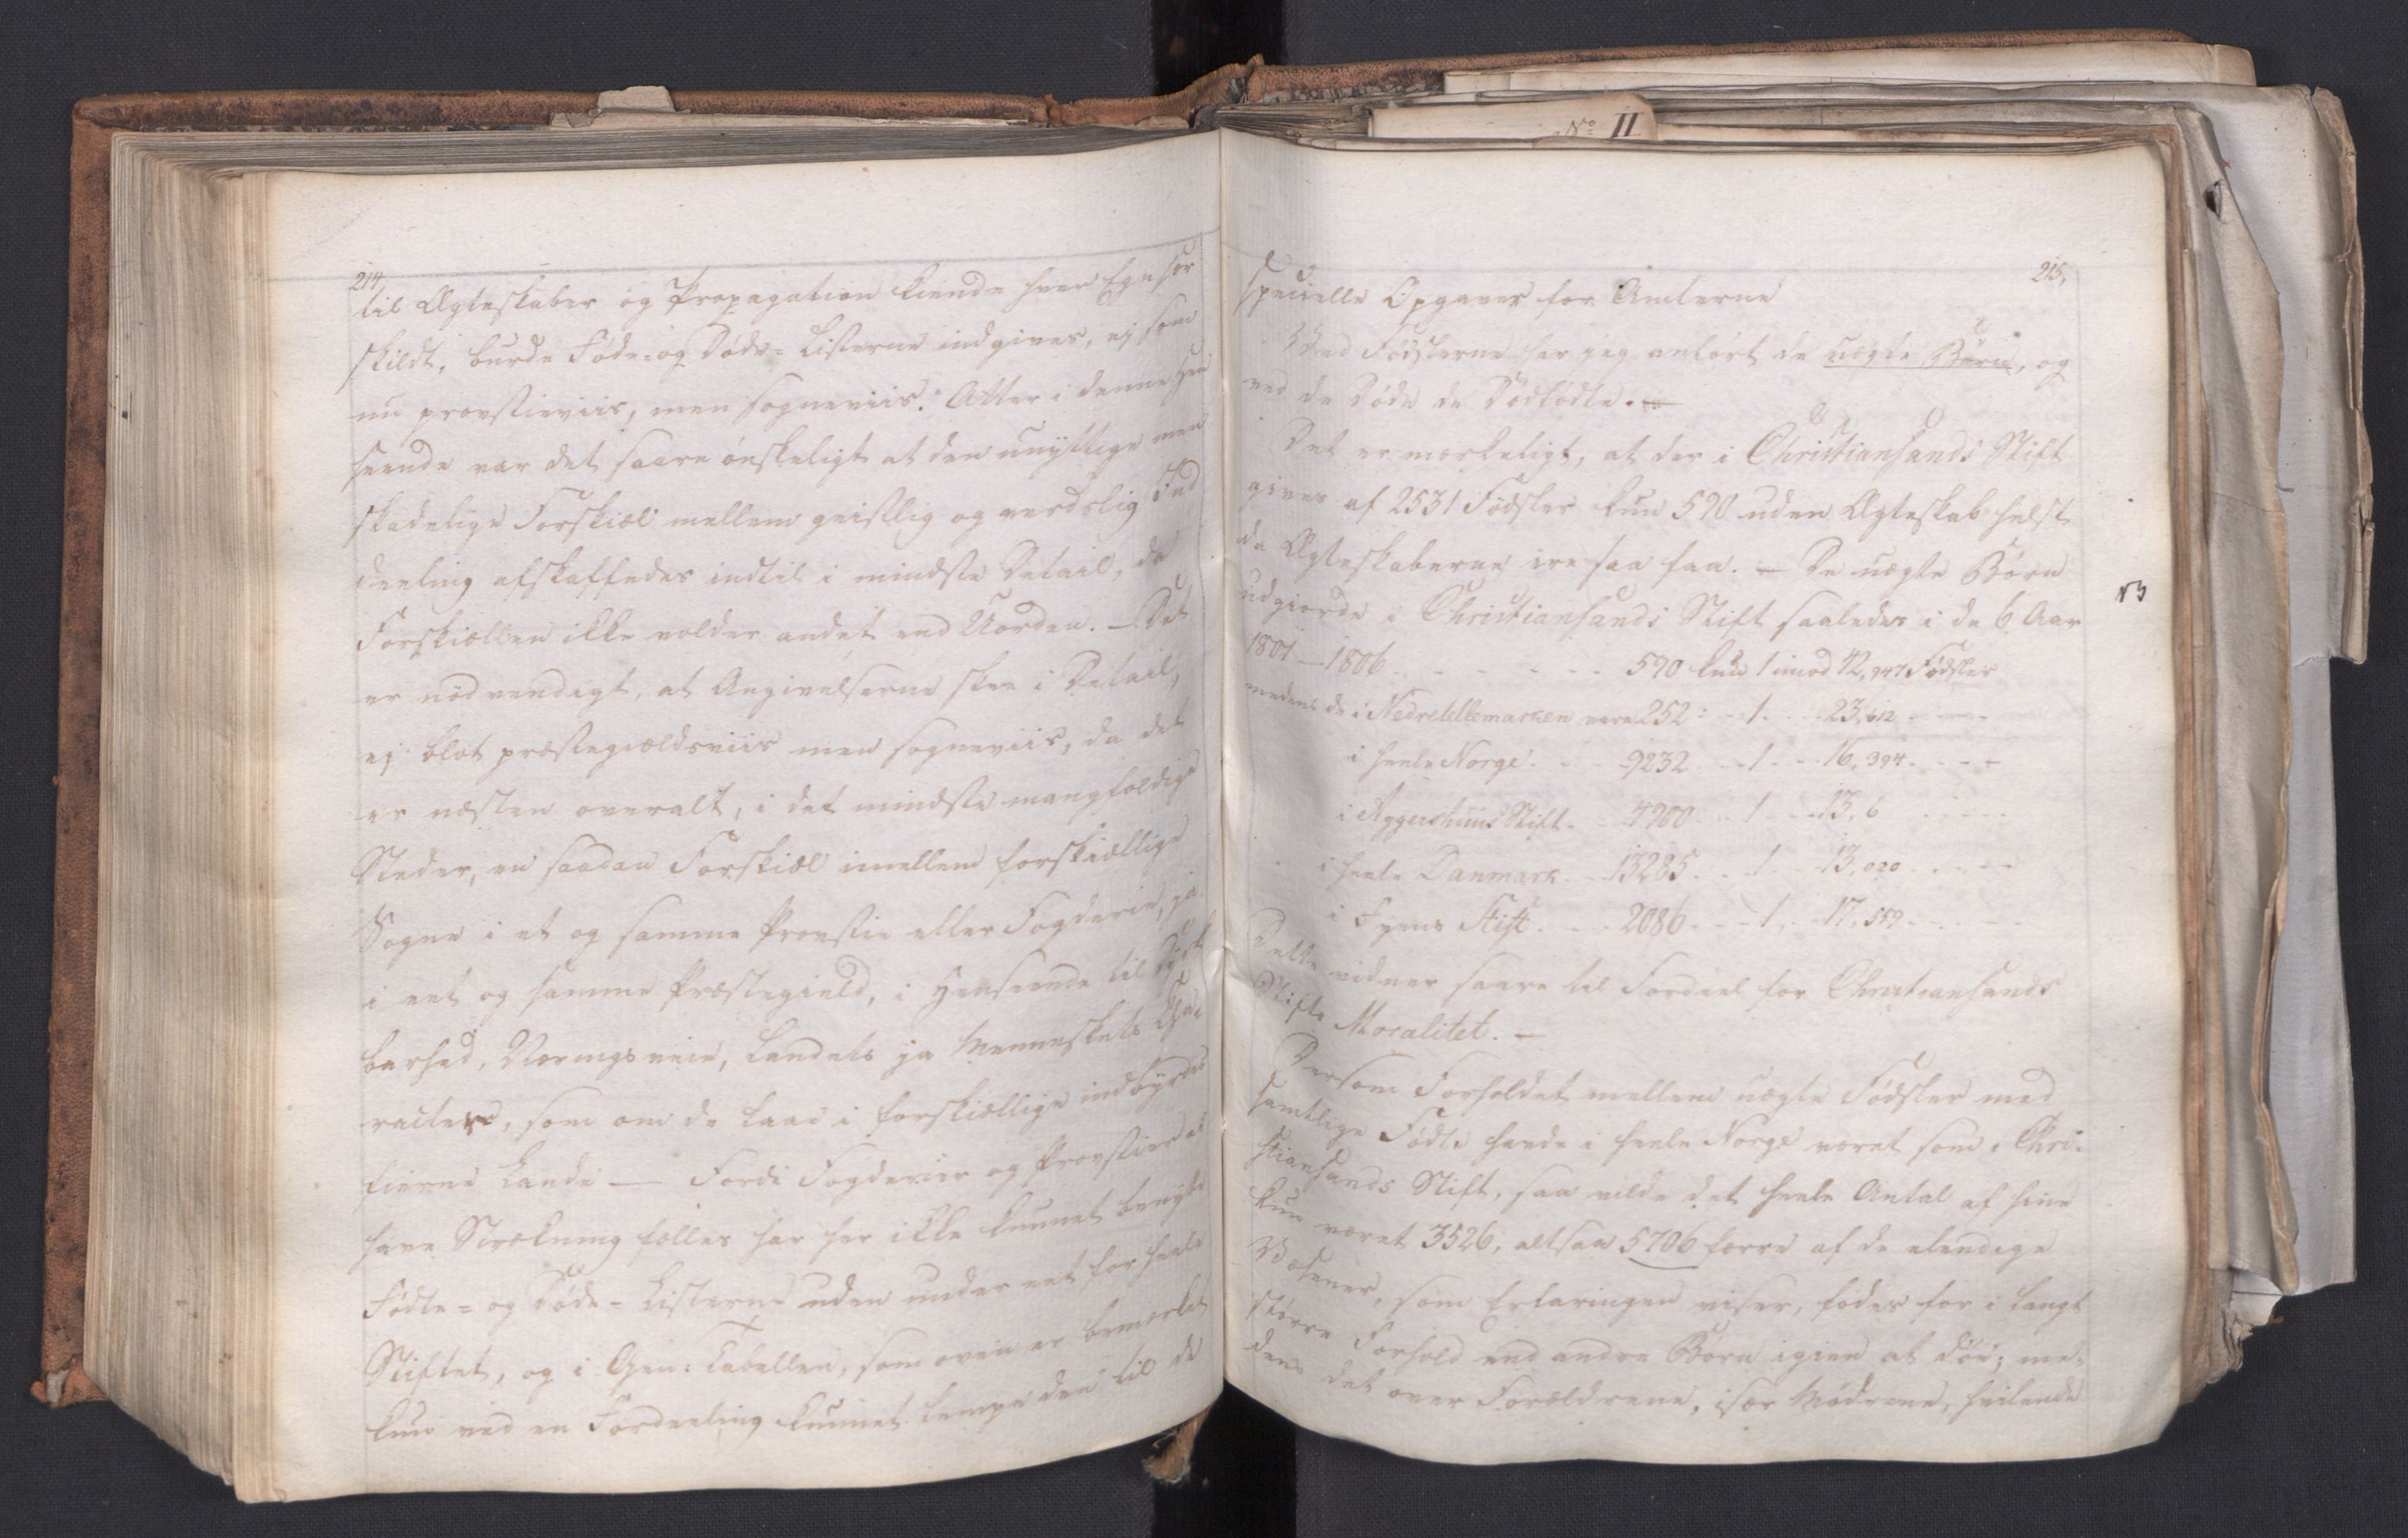 No II
214,
til Ægteskaber og Propagation kiende hver Egn sær
skildt, burde Føde- og Døde-Listerne indgives, ej som
nu provstieviis, men sogneviis. Atter i denne Hen
seende var det saare ønskeligt at den unyttige men
skadelige Forskiæl mellem geistlig og verdslig Ind
deeling afskaffedes indtil i mindste Detail, da
Forskiællen ikke volder andet end Uorden. – Det
er nødvendigt, at Angivelserne skee i Detail,
ej blot præstegieldsviis men sogneviis, da det
er næsten overalt, i det mindste mangfoldige
Steder, en saadan Forskiæl imellem forskiællige
Sogne i et og samme Provstie eller Fogderie, ja
i eet og samme Præstegield, i Henseende til Dyrk
barhed, Næringsveie, Landets ja Menneskets Cha-
racteer, som om de laae i forskiællige indbyrdes
fierne Lande — Fordi Fogderier og Provstier ei
have Strækning fælles har her ikke kunnet benyttes
Fødte- og Døde-Listerne uden under eet for heele
Stiftet, og i Gen: Tabellen, som oven er bemærket
kun ved en Fordeeling kunnet lempe den til de
215,
specielle Opgaver for Amterne
Ved Fødslerne har jeg anført de uægte Børn, og
ved de Døde de Dødfødte. –
Det er mærkeligt, at der i Christiansands Stift
gives af 2531 Fødsler kun 590 uden Ægteskab helst
da Ægteskaberne ere saa faa. – De uægte Børn
udgiorde i Christiansands Stift saaledes i de 6 Aar
1801 – 1806 . . . . . . . 590 kun 1 imod 42,947 Fødsler
medens de i Nedretellemarken vare 252 : - 1 . . . 23,612 . - - -
i heele Norge . . . 9232 . . 1 . . . 16,394 . - - -
i Aggershuus Stift . . 4900 . . 1 . . . 13,6 . . . .
i heele Danmark . . 13285 . . 1 . . 13,020 . . . .
i Fyens Stift . . . 2086 . . . 1 . . 17,559 . . . .
Dette vidner saare til Fordeel for Christiansands
Stifts Moralitet. –
Dersom Forholdet mellem uægte Fødsler med
samtlige Fødte havde i heele Norge været som i Chri-
stiansands Stift, saa vilde det heele Antal af hine
kun været 3526, altsaa 5706 færre af de elendige
Væsener, som Erfaringen viser, fødes for i langt
større Forhold end andre Børn igien at døe; me-
dens det over Forældrene, især Mødrene, hvilende